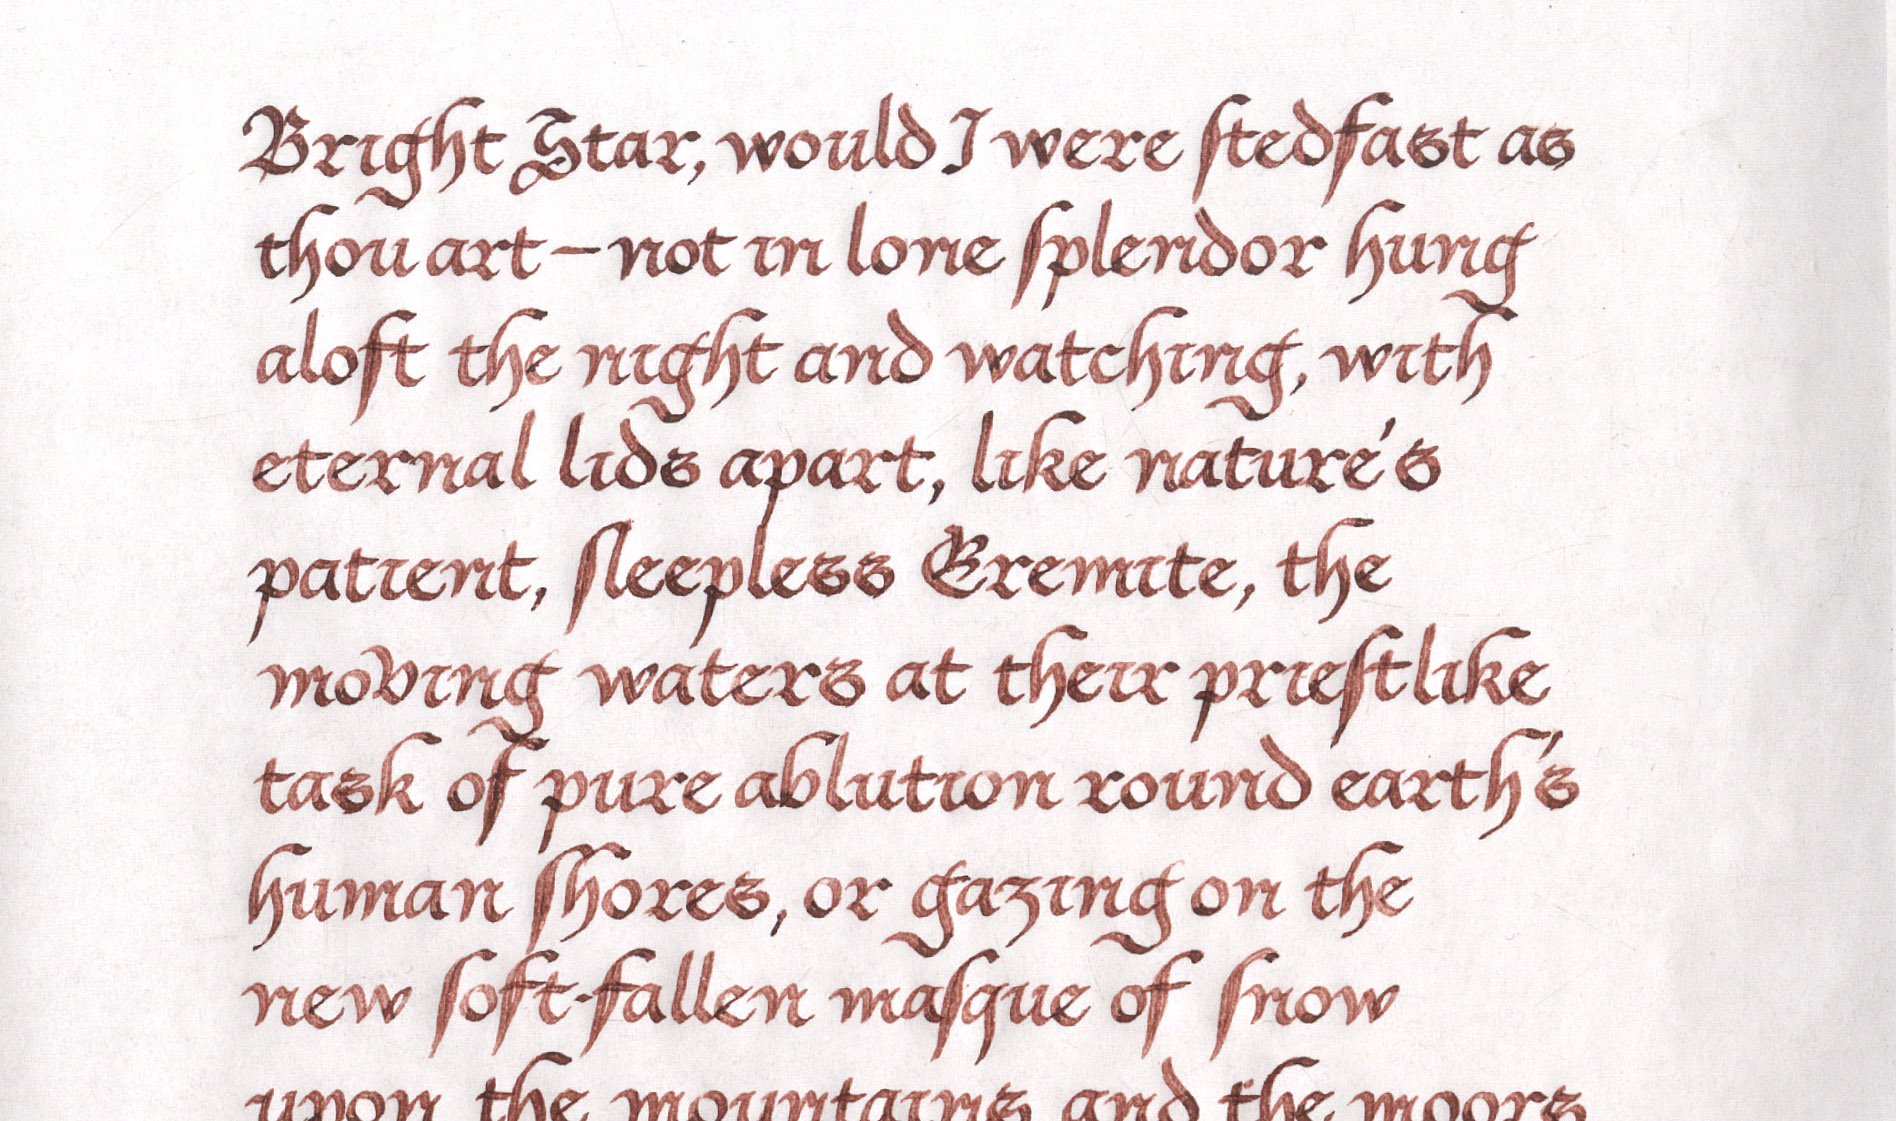 Bright Star, would I were stedfast as
thou art – not in lone splendor hung
aloft the night and watching, with
eternal lids apart, like nature's
patient, sleepless Eremite, the
moving waters at their priestlike
task of pure ablution round earth's
human shores, or gazing on the
new soft-fallen masque of snow
upon the mountains and the moors